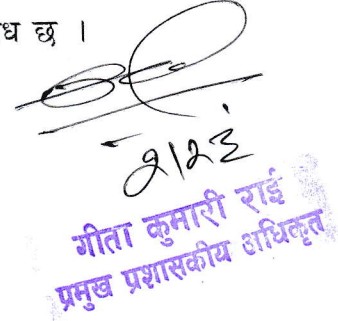 ध छ ।
२।२३
गीता कुमारी राई
प्रमुख प्रशासकीय अधिकृत